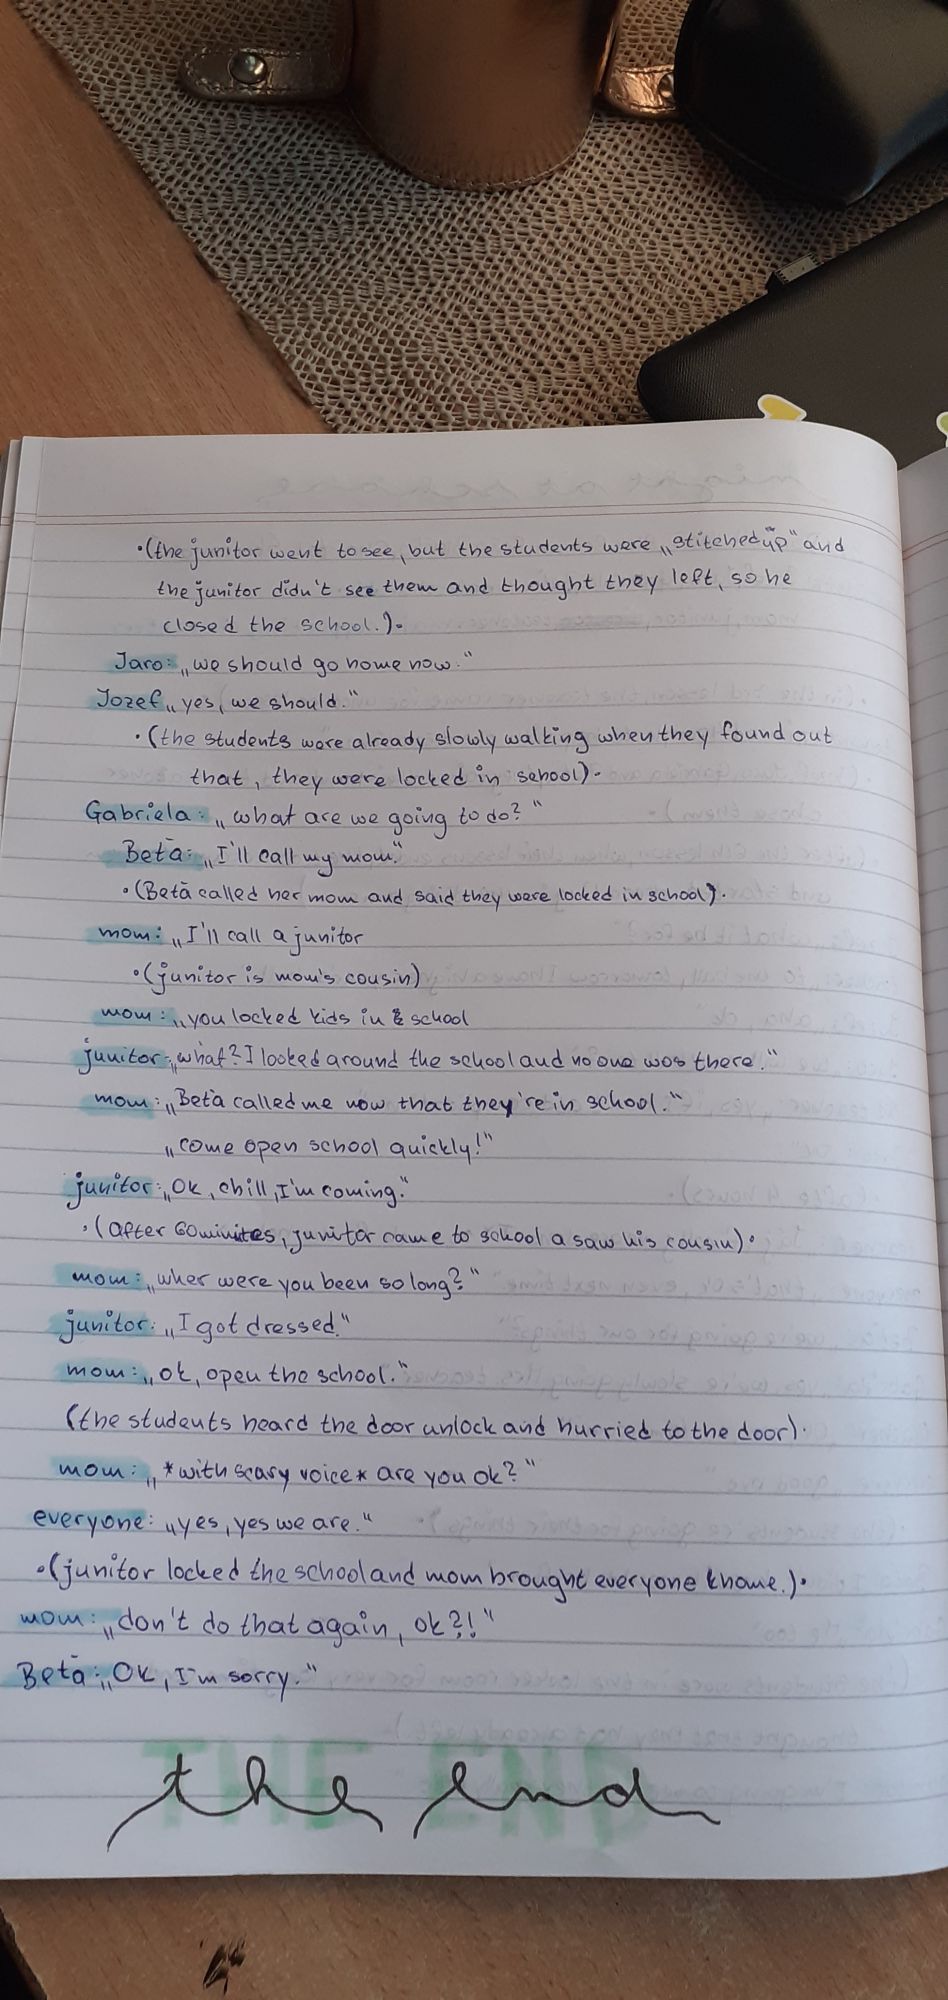 •(the junitor went to see, but the students were „stitched up" and
the junitor didn't see them and thought they left, so he
closed the school.)•
Jaro: „we should go home now."
Jozef „yes, we should."
•(the students were already slowly walking when they found out
that, they were locked in school)•
Gabriela: „what are we going to do?"
Betă: „I'll call my mom."
•(Betă called her mom and said they were locked in school)•
mom: „I'll call a junitor
•(junitor is mom's cousin)
mom: „you locked kids in school
junitor: „what? I looked around the school and no one was there."
mom: „Betă called me now that they're in school."
„come open school quickly!"
junitor: „Ok, chill, I'm coming."
•(after 60 minites, junitor came to school a saw his cousin)•
mom: „wher were you been so long?"
junitor: „I got dressed."
mom: „ok, open the school."
(the students heard the door unlock and hurried to the door)•
mom: „*with scary voice* are you ok?"
everyone: „yes, yes we are."
•(junitor locked the school and mom brought everyone home.)•
mom: „don't do that again, ok?!"
Betă: „Ok, I'm sorry."
THE END
the end